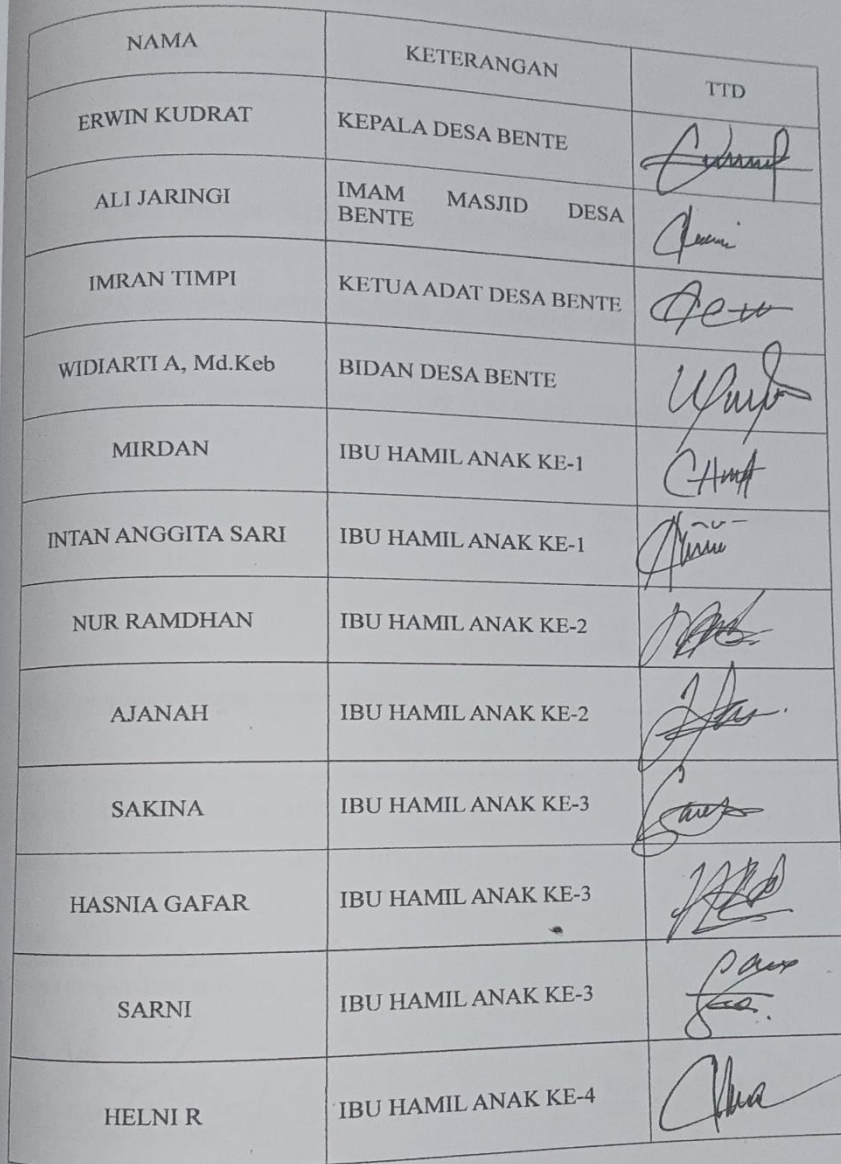 NAMA KETERANGAN TTD
ERWIN KUDRAT KEPALA DESA BENTE
ALI JARINGI IMAM MASJID DESA
BENTE
IMRAN TIMPI KETUA ADAT DESA BENTE
WIDIARTI A, Md.Keb BIDAN DESA BENTE
MIRDAN IBU HAMIL ANAK KE-1
INTAN ANGGITA SARI IBU HAMIL ANAK KE-1
NUR RAMDHAN IBU HAMIL ANAK KE-2
AJANAH IBU HAMIL ANAK KE-2
SAKINA IBU HAMIL ANAK KE-3
HASNIA GAFAR IBU HAMIL ANAK KE-3
SARNI IBU HAMIL ANAK KE-3
HELNI R IBU HAMIL ANAK KE-4